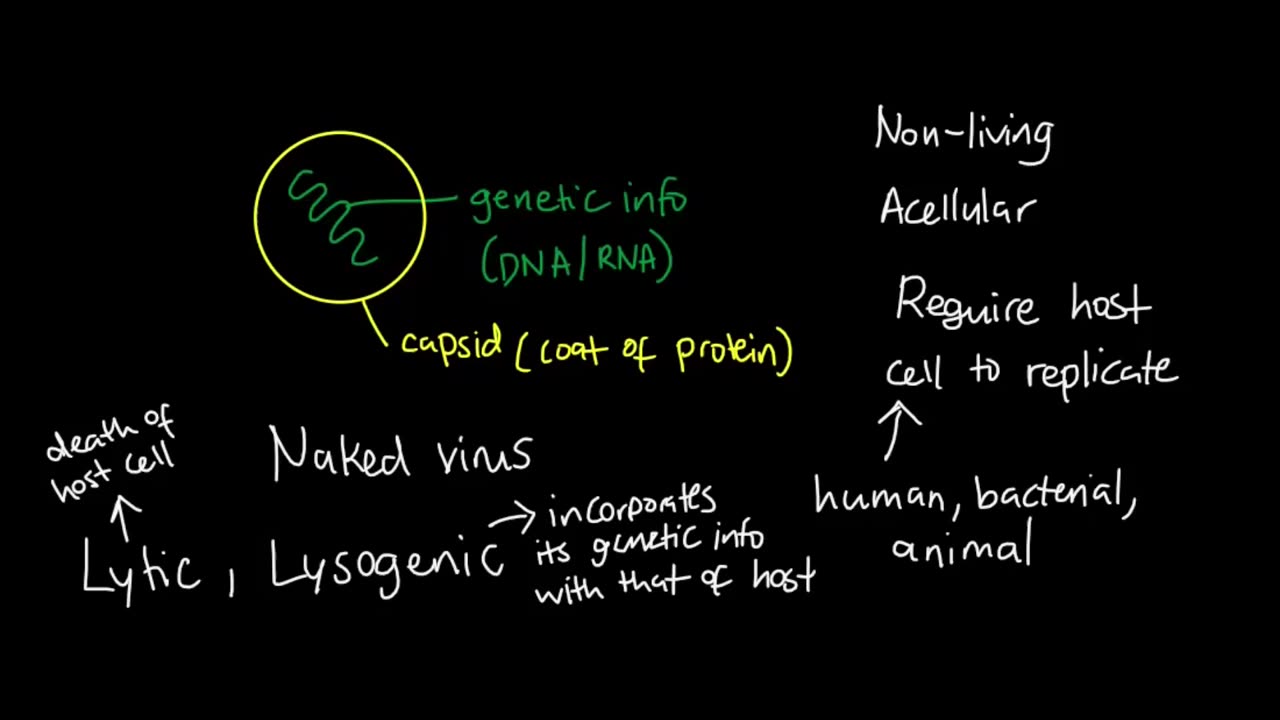 genetic info
(DNA/RNA)
capsid (coat of protein)
Non-living
Acellular
Require host
cell to replicate
human, bacterial,
animal
death of
host cell
Naked virus
Lytic, Lysogenic
incorporates
its genetic info
with that of host